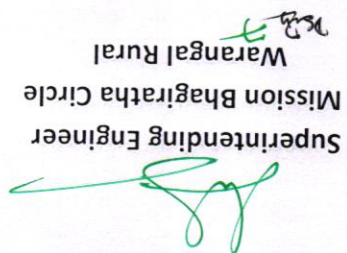 Superintending Engineer
Mission Bhagiratha Circle
Warangal Rural